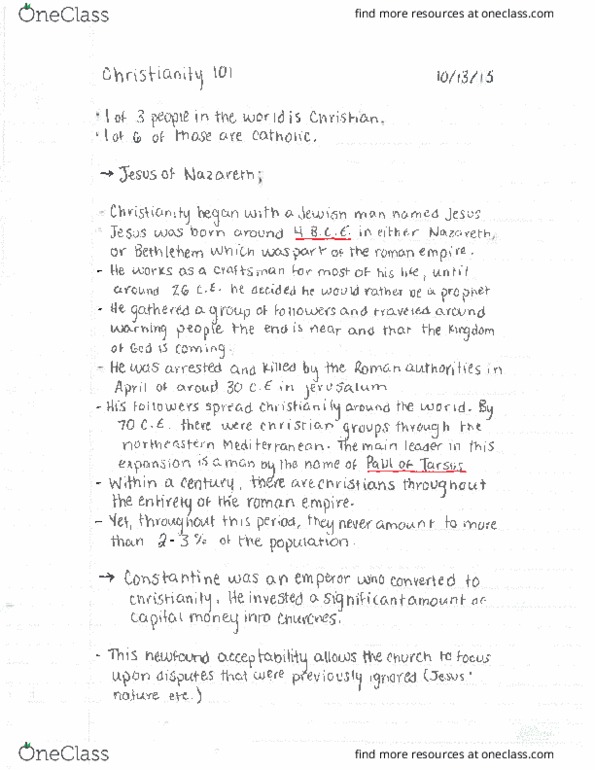 OneClass
find more resources at oneclass.com
Christianity 101 10/13/15
• 1 of 3 people in the world is Christian.
• 1 of 6 of those are catholic.
→ Jesus of Nazareth;
- Christianity began with a Jewish man named Jesus
Jesus was born around 4 B.C.E. in either Nazareth,
or Bethlehem which was part of the roman empire.
- He works as a craftsman for most of his life, until
around 26 C.E. he decided he would rather be a prophet
- He gathered a group of followers and traveled around
warning people the end is near and that the kingdom
of God is coming.
- He was arrested and killed by the Roman authorities in
April of aroud 30 C.E in jerusalum
- His followers spread christianity around the world. By
70 C.E. there were christian groups through the
northeastern Mediterranean. The main leader in this
expansion is a man by the name of Paul of Tarsus
- Within a century, there are christians throughout
the entirety of the roman empire.
- Yet, throughout this period, they never amount to more
than 2-3% of the population.
→ Constantine was an emperor who converted to
christianity. He invested a significant amount of
capital money into churches.
- This newfound acceptability allows the church to focus
upon disputes that were previously ignored (Jesus'
nature etc.)
OneClass
find more resources at oneclass.com